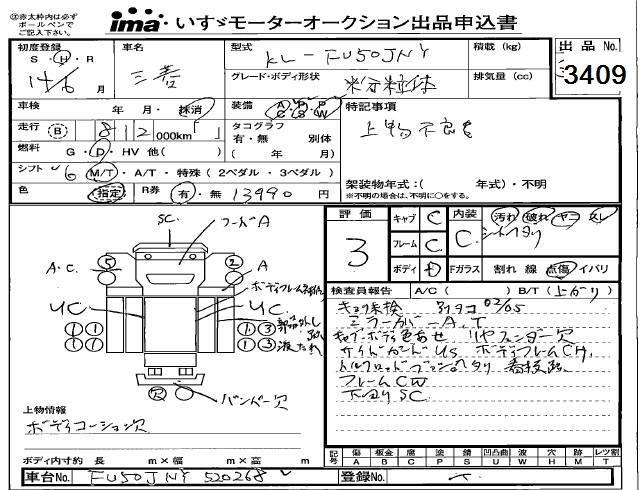 ③赤太枠内は必ず
ボールペンで
ご記入下さい。
ima いすゞモーターオークション出品申込書
初度登録 車名 型式 積載(kg) 出品No.
S・H・R 三菱 KL-FU50JNY 3409
月 グレード・ボディ形状 排気量(cc)
粉粒体
車検 年 月・抹消 装備 A P P C S W 特記事項
走行 B 812 000km「 」 タコグラフ 有・無 別体
上物不良
燃料 G・D・HV 他( ) ( 年 月)
シフト 6 M/T・A/T・特殊(2ペダル・3ペダル) 架装物年式:( 年式)・不明
※不明の場合は、不明に○をする。
色 指定 R券 有・無 13990 円
評価 キャブ C 内装 汚れ 破れ ヤコ ヌレ
3 フレーム C C シートヘタリ
ボディ D Fガラス 割れ 線 点傷 イバリ
検査員報告 A/C( ) B/T(上がり)
SC. フードA
5 2
A.C. A
ボディフレーム
UC UC
1 1 1 3
1 1 1 3
液だれ
欠 バンパー欠
ミラーカバーA,T
キャブ・ボディ色あせ リヤフェンダー欠
サイドガードUS ボディフレームCH,
フレームCW
下回りSC
上物情報
ボディコーション欠
ボディ内寸約 長 m×幅 m×高 m
記号 傷 板金 腐 塗 錆 凹凸曲 波 穴 跡 レツ割
A B C P S U W H M T
車台No. FU50JNY 520268 登録No.